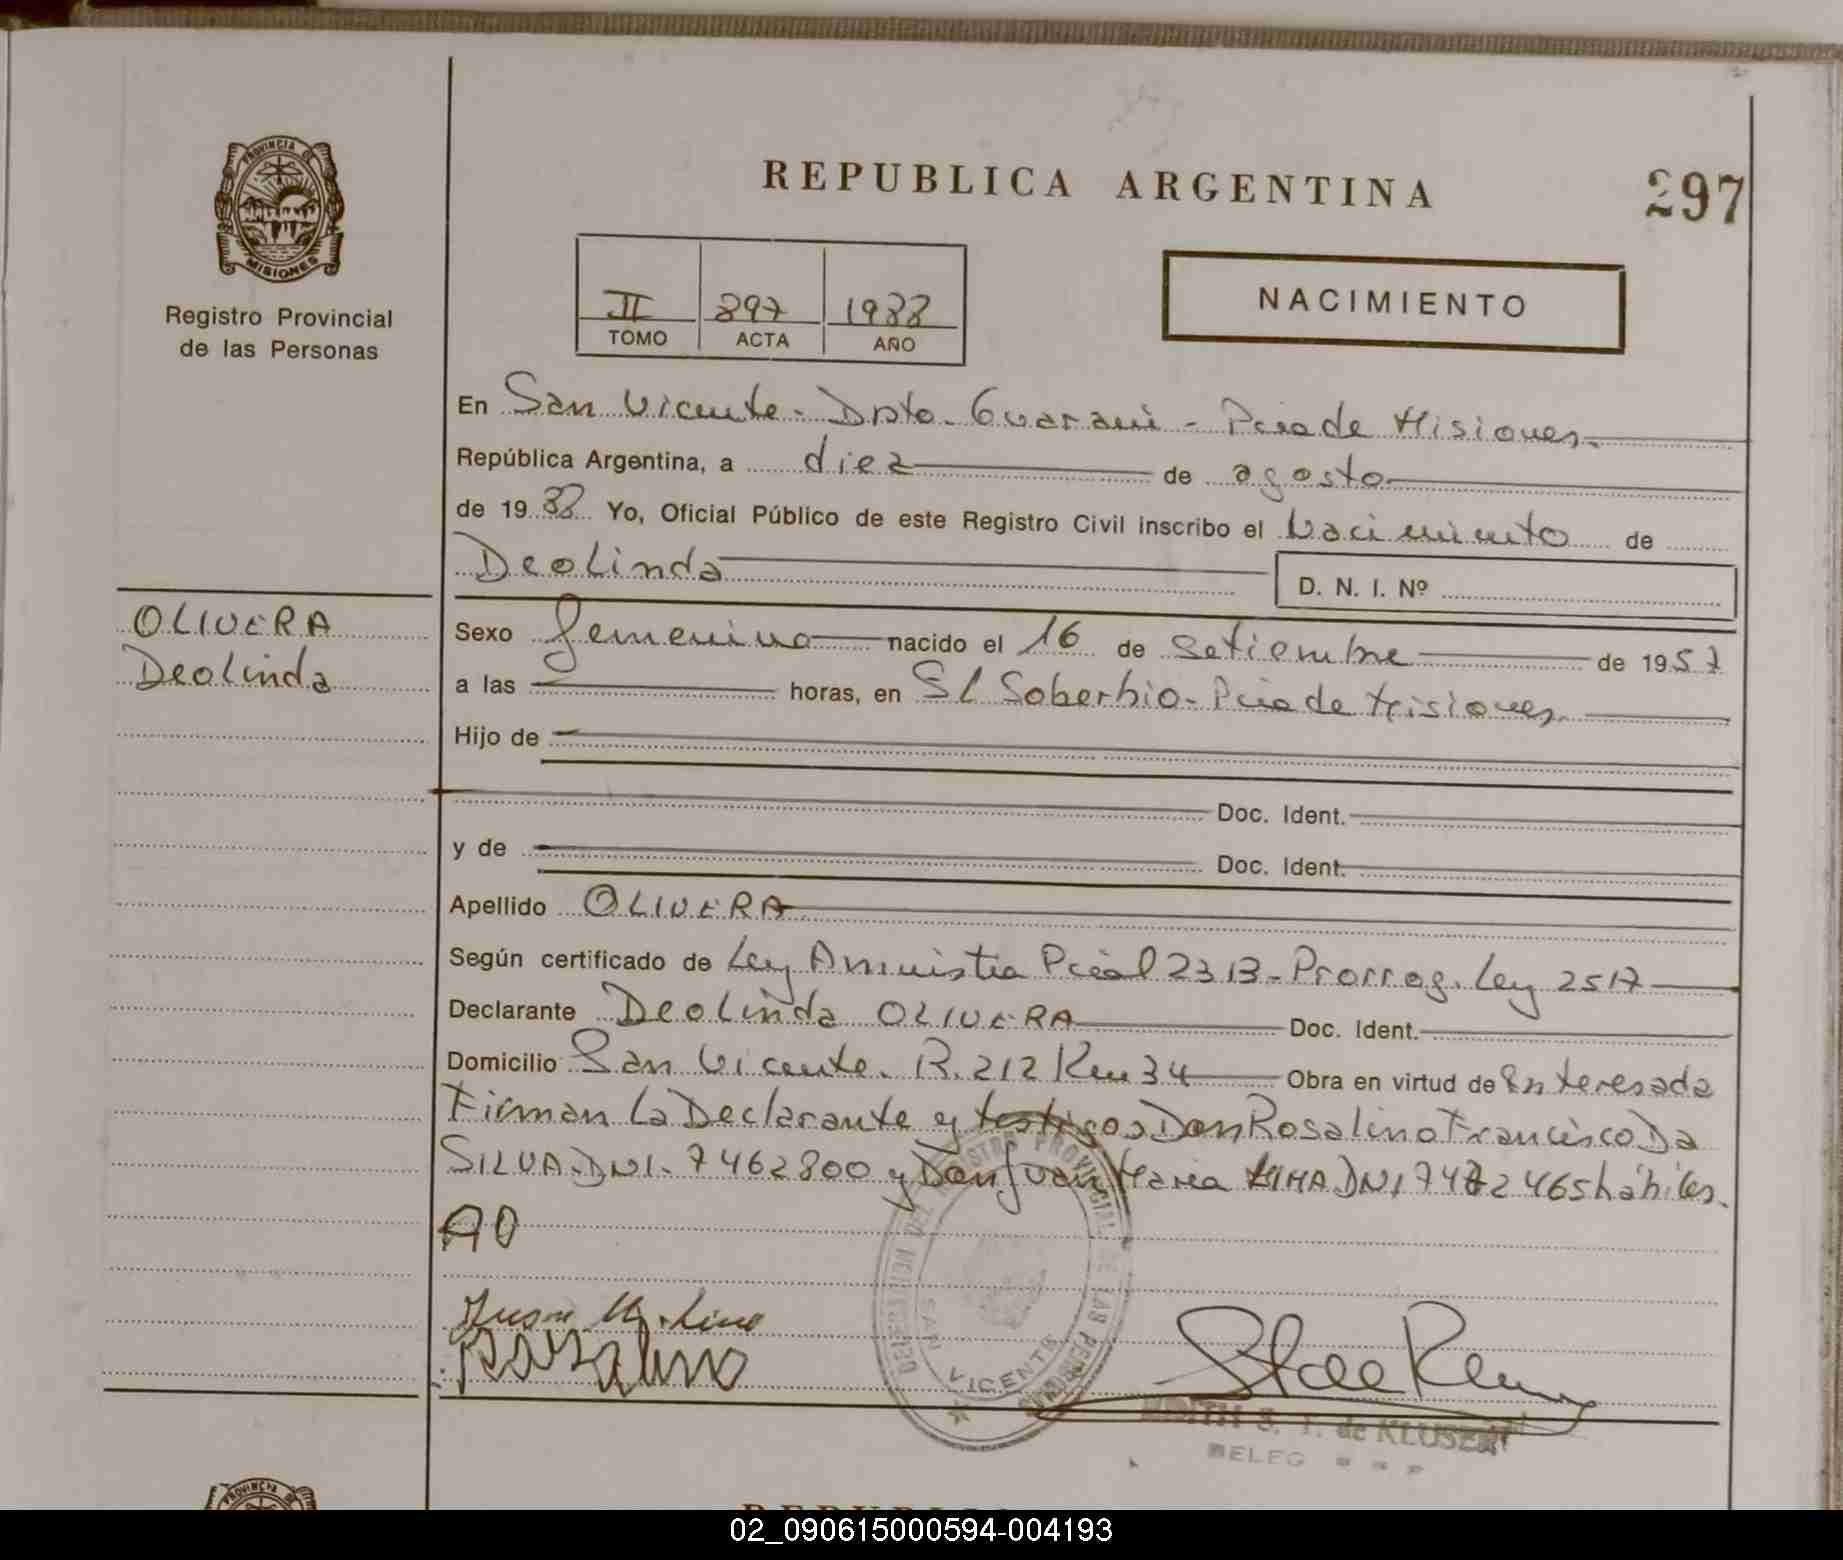 PROVINCIA DE
MISIONES
Registro Provincial
de las Personas
REPUBLICA ARGENTINA
297
II 897 1988
TOMO ACTA AÑO
NACIMIENTO
En San Vicente - Dpto. Guaraní - Pcia de Misiones.
República Argentina, a diez de agosto
de 1988 Yo, Oficial Público de este Registro Civil inscribo el Nacimiento de
Deolinda D. N. I. Nº
OLIVERA
Deolinda
Sexo femenino nacido el 16 de setiembre de 1957
a las horas, en El Soberbio - Pcia de Misiones.
Hijo de
Doc. Ident.
y de Doc. Ident.
Apellido OLIVERA
Según certificado de Ley Amnistia Pcial 2313 - Prorrog. Ley 2517
Declarante Deolinda OLIVERA Doc. Ident.
Domicilio San Vicente. R. 212 Km 34 Obra en virtud de Interesada
Firman La Declarante y testigos Don Rosalino Francisco Da
SILVA. DNI. 7462800 y Don Juan Maria LIMA DNI 7472465 hábiles.
AO
Juan M. Lima
Rosalino
REGISTRO PROVINCIAL DE LAS PERSONAS
SAN VICENTE
EDITH S. T. de KLUSENER
DELEG
REPUBLIC
02_090615000594-004193